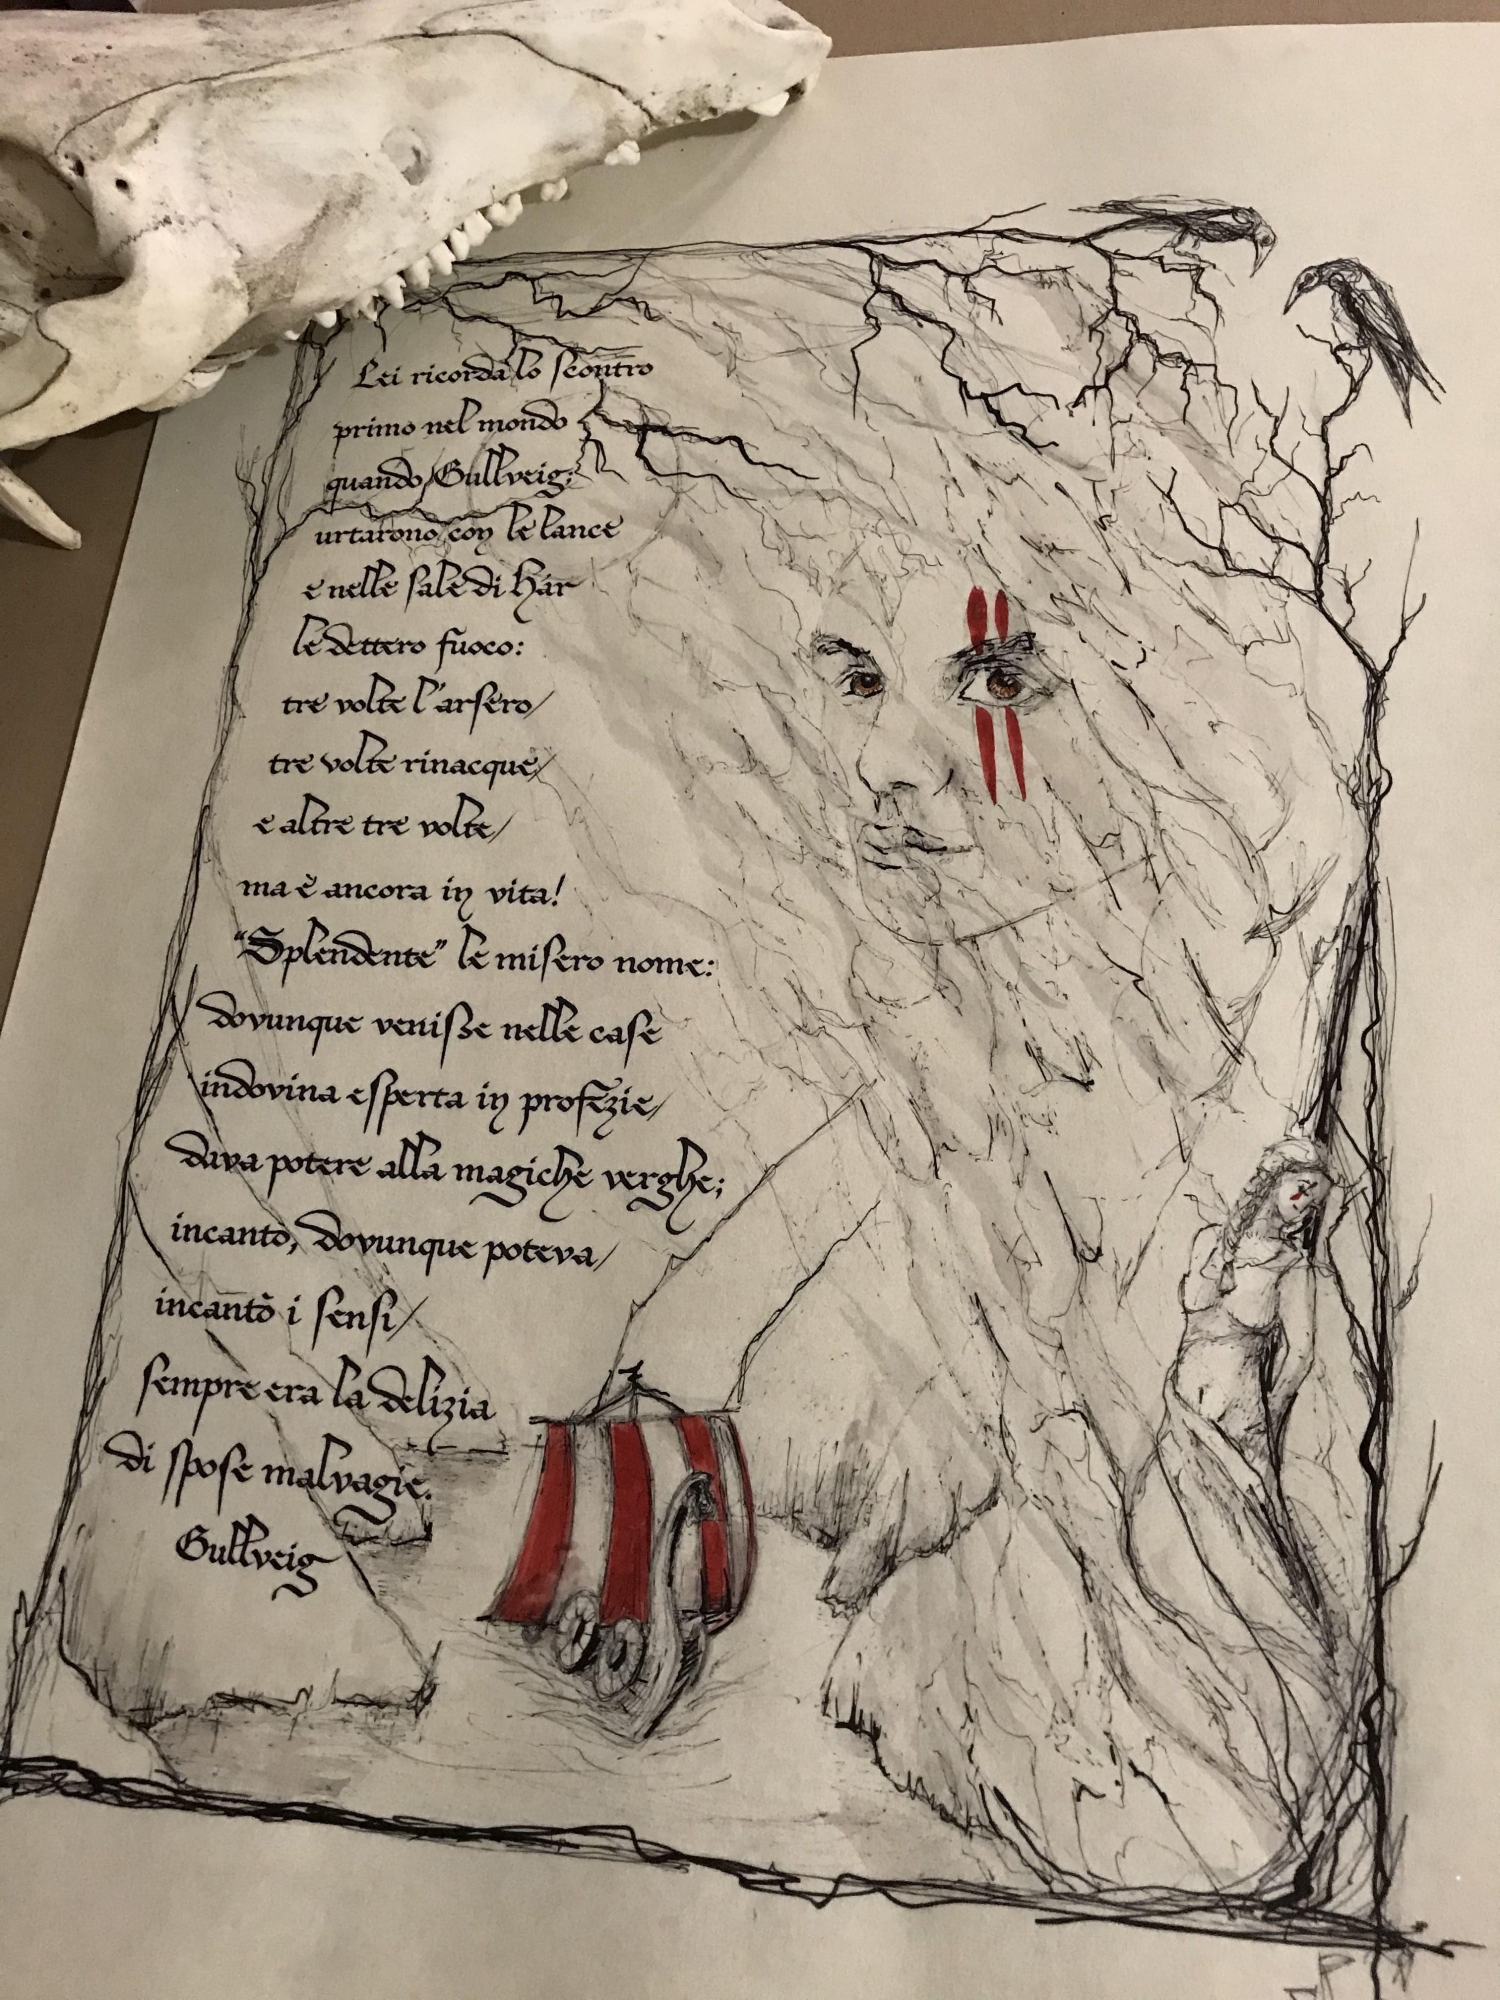 Lei ricorda lo scontro
primo nel mondo
quando Gullveig;
urtarono con le lance
e nelle sale di Hár
le dettero fuoco:
tre volte l'arsero/
tre volte rinacque/
e altre tre volte/
ma è ancora in vita!
"Splendente" le misero nome:
dovunque venisse nelle case
indovina esperta in profezie/
dava potere alla magiche verghe;
incantò, dovunque poteva/
incantò i sensi/
sempre era la delizia
di spose malvagie.
Gullveig